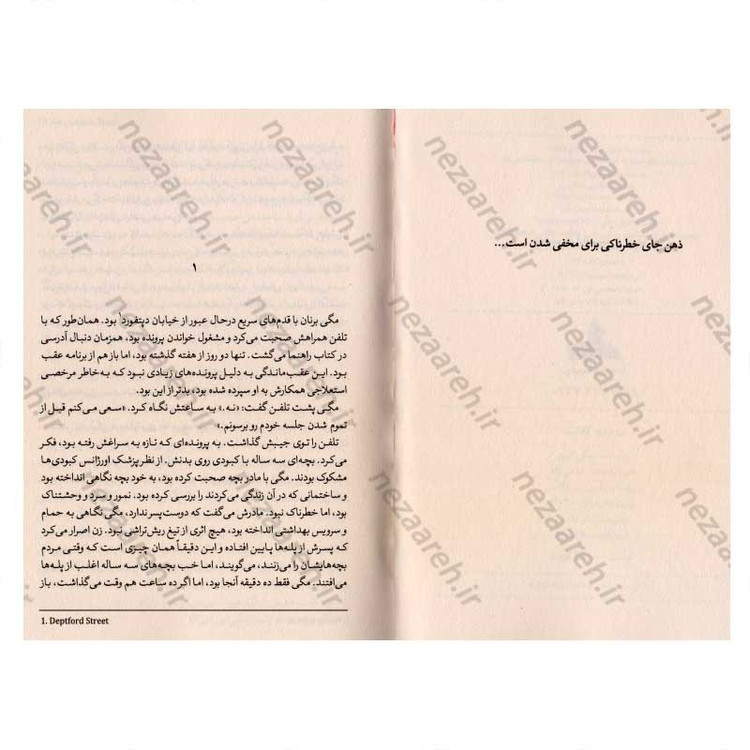 ذهن جای خطرناکی برای مخفی شدن است...
۱
مگی برنان با قدم‌های سریع درحال عبور از خیابان دپتفورد۱ بود. همان‌طور که با
تلفن همراهش صحبت می‌کرد و مشغول خواندن پرونده بود، همزمان دنبال آدرسی
در کتاب راهنما می‌گشت. تنها دو روز از هفته گذشته بود، اما بازهم از برنامه عقب
بود. این عقب‌ماندگی به دلیل پرونده‌های زیادی نبود که به‌خاطر مرخصی
استعلاجی همکارش به او سپرده شده بود، بدتر از این بود.
مگی پشت تلفن گفت: «نه.» به ساعتش نگاه کرد. «سعی می‌کنم قبل از
تموم شدن جلسه خودم رو برسونم.»
تلفن را توی جیبش گذاشت. به پرونده‌ای که تازه به سراغش رفته بود، فکر
می‌کرد. بچه‌ای سه ساله با کبودی روی بدنش. از نظر پزشک اورژانس کبودی‌ها
مشکوک بودند. مگی با مادر بچه صحبت کرده بود، به خود بچه نگاهی انداخته بود
و ساختمانی که در آن زندگی می‌کردند را بررسی کرده بود. نمور و سرد و وحشتناک
بود، اما خطرناک نبود. مادرش می‌گفت که دوست‌پسر ندارد، مگی نگاهی به حمام
و سرویس بهداشتی انداخته بود، هیچ اثری از تیغ ریش‌تراشی نبود. زن اصرار می‌کرد
که پسرش از پله‌ها پایین افتاده و این دقیقاً همان چیزی است که وقتی مردم
بچه‌هایشان را می‌زنند، می‌گویند، اما خب بچه‌های سه ساله اغلب از پله‌ها
می‌افتند. مگی فقط ده دقیقه آنجا بود، اما اگر ده ساعت هم وقت می‌گذاشت، باز
1. Deptford Street
nezaareh.ir
nezaareh.ir
nezaareh.ir
nezaareh.ir
nezaareh.ir
nezaareh.ir
nezaareh.ir
nezaareh.ir